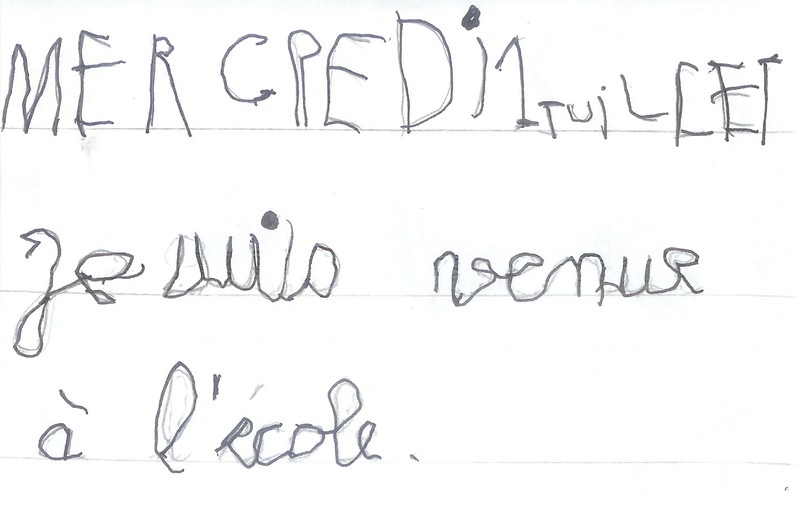 MERCREDi 1 JUiLLET
Je suis venue
à l'école.